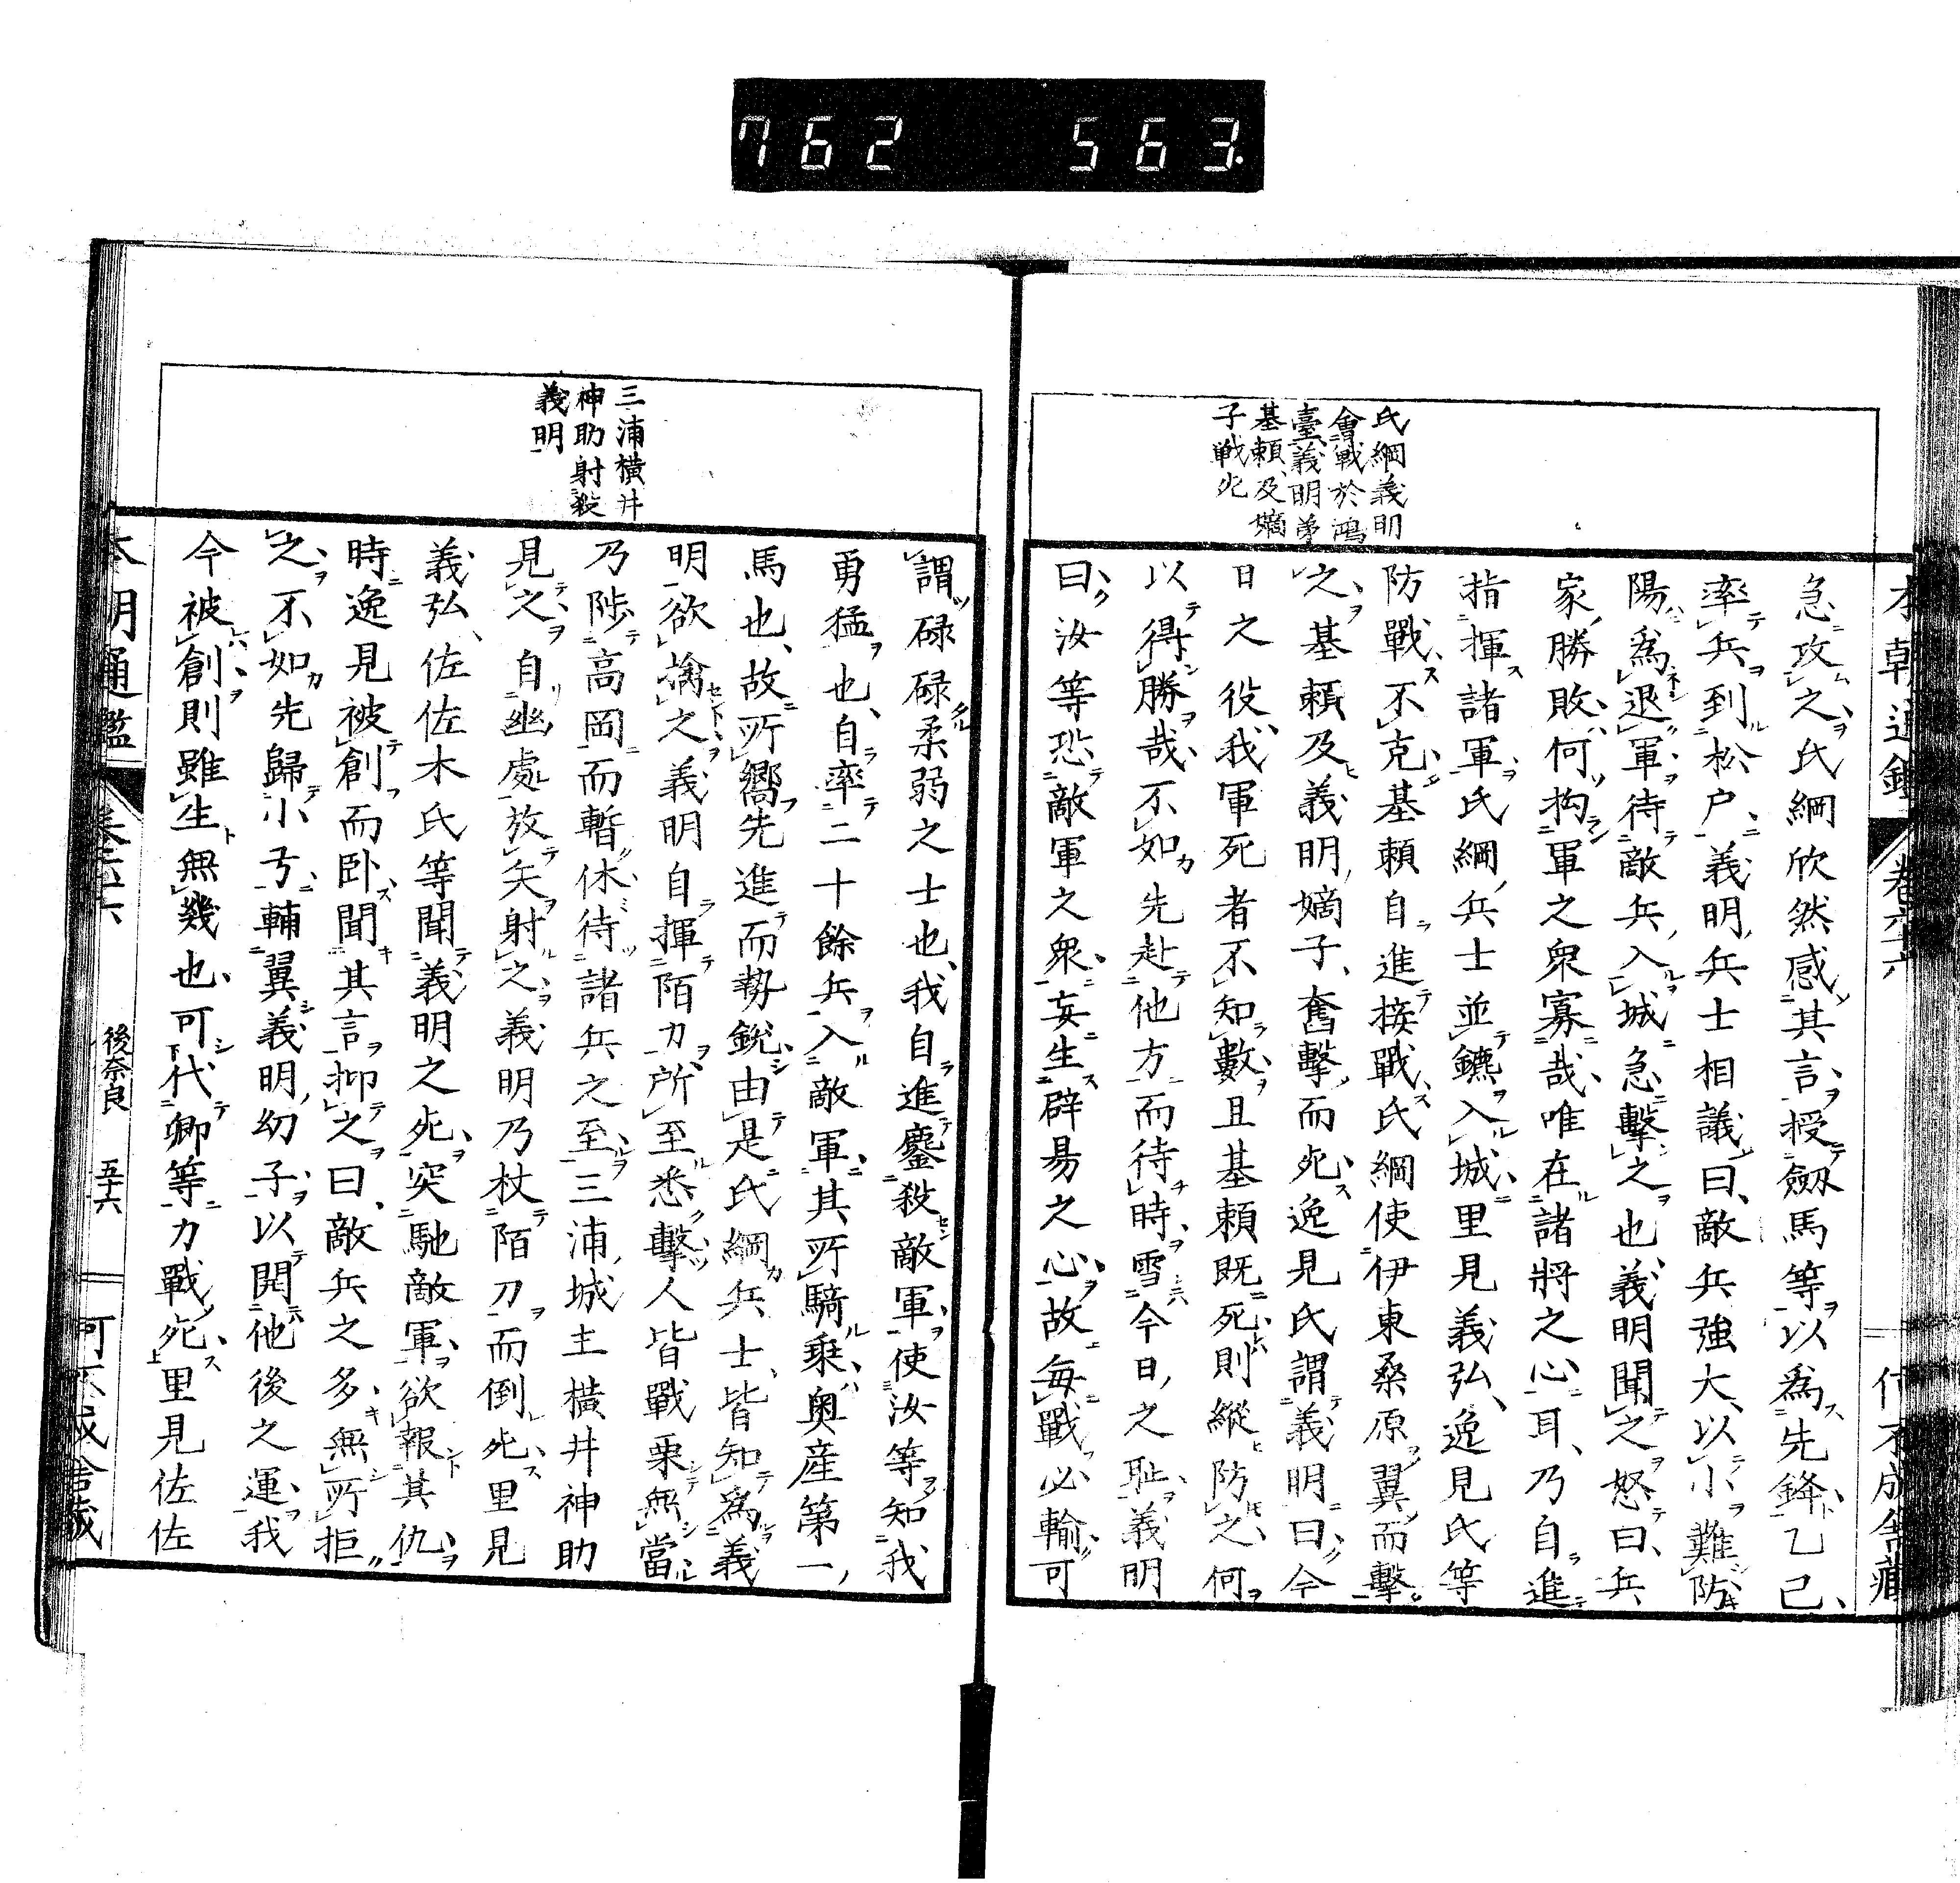 762 563.
氏綱義明
會戰於鴻
臺義明弟
基頼及嫡
子戰死
急攻之氏綱欣然感其言授劔馬等以爲先鋒乙已
率兵到松戸義明兵士相議曰敵兵強大以小難防
陽爲退軍待敵兵入城急擊之也義明聞之怒曰兵
家勝敗何拘軍之衆寡哉唯在諸將之心耳乃自進
指揮諸軍氏綱兵士並鑣入城里見義弘逸見氏等
防戰不克基頼自進接戰氏綱使伊東桑原翼而擊
之基頼及義明嫡子奮擊而死逸見氏謂義明曰今
日之役我軍死者不知數且基頼既死則縱防之何
以得勝哉不如先赴他方而待時雪今日之耻義明
曰汝等恐敵軍之衆妄生辟易之心故每戰必輸可
三浦横井
神助射殺
義明
謂碌碌柔弱之士也我自進鏖殺敵軍使汝等知我
勇猛也自率二十餘兵入敵軍其所騎乗奥産第一
馬也故所嚮先進而勢銳由是氏綱兵士皆知爲義
明欲擒之義明自揮陌刀所至悉擊人皆戰栗無當
乃陟高岡而暫休待諸兵之至三浦城主横井神助
見之自幽處放矢射之義明乃杖陌刀而倒死里見
義弘佐佐木氏等聞義明之死突馳敵軍欲報其仇
時逸見被創而卧聞其言抑之曰敵兵之多無所拒
之不如先歸小弓輔翼義明幼子以開他後之運我
今被創則雖生無幾也可代卿等力戰死里見佐佐
本朝通鑑 卷六十六 後奈良 五十六